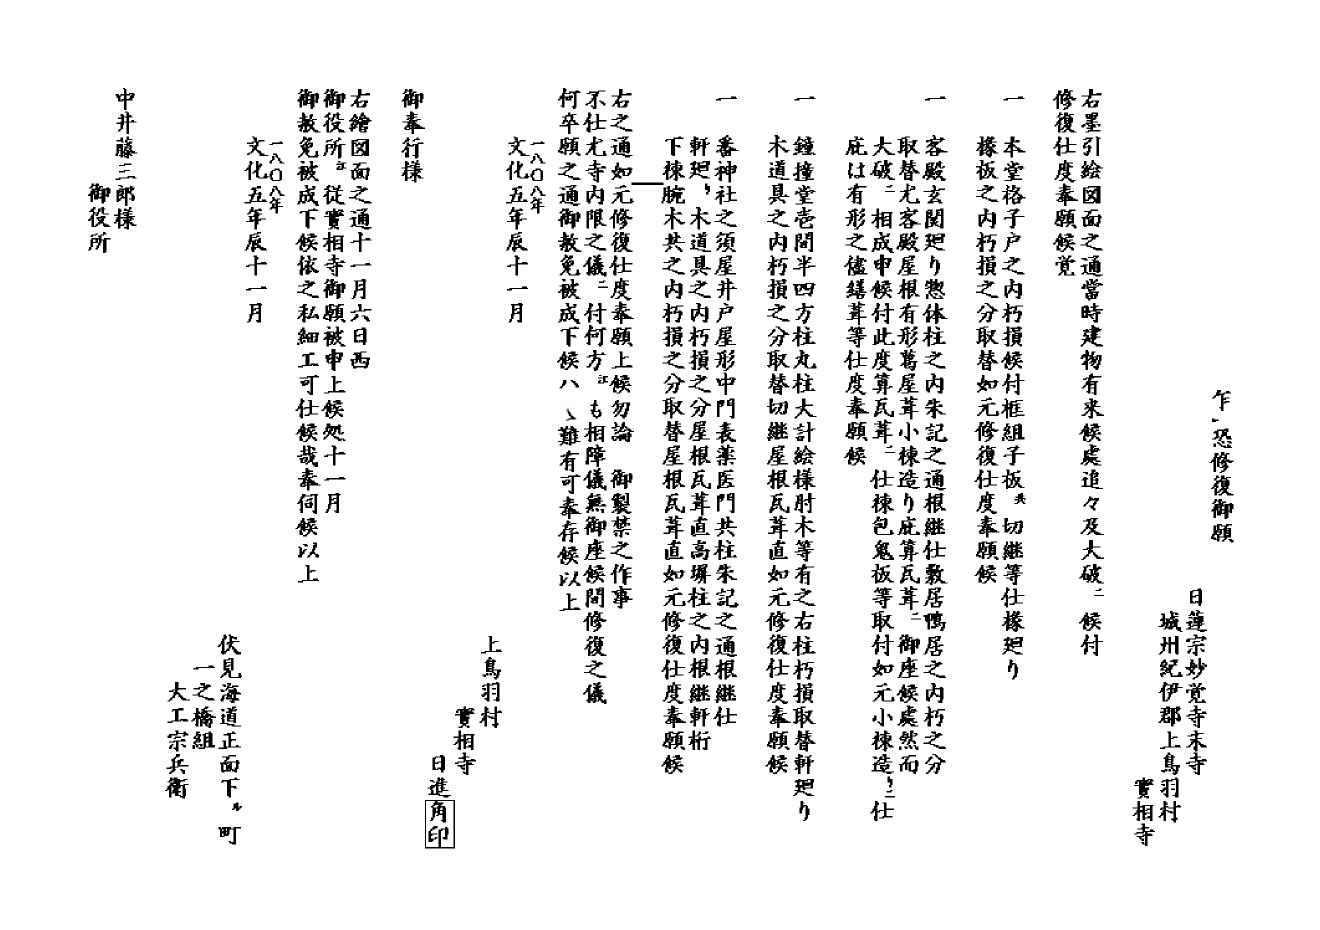 乍恐修復御願
日蓮宗妙覚寺末寺
城州紀伊郡上鳥羽村
實相寺
右墨引絵図面之通當時建物有来候處追々及大破ニ候付
修復仕度奉願候覚
一 本堂格子戸之内朽損候付框組子板共切継等仕椽廻り
椽板之内朽損之分取替如元修復仕度奉願候
一 客殿玄関廻り惣体柱之内朱記之通根継仕敷居鴨居之内朽之分
取替尤客殿屋根有形萬屋葺小棟造り庇算瓦葺ニ御座候處然而
大破ニ相成申候付此度算瓦葺ニ仕棟包鬼板等取付如元小棟造りニ仕
庇は有形之儘繕葺等仕度奉願候
一 鐘撞堂壱間半四方柱丸柱大計絵様肘木等有之右柱朽損取替軒廻り
木道具之内朽損之分取替切継屋根瓦葺直如元修復仕度奉願候
一 番神社之須屋井戸屋形中門表薬医門共柱朱記之通根継仕
軒廻り木道具之内朽損之分屋根瓦葺直高塀柱之内根継軒桁
下棟腕木共之内朽損之分取替屋根瓦葺直如元修復仕度奉願候
右之通如元修復仕度奉願上候勿論 御製禁之作事
不仕尤寺内限之儀ニ付何方江も相障儀無御座候間修復之儀
何卒願之通御赦免被成下候ハヽ難有可奉存候以上
一八〇八年
文化五年辰十一月
上鳥羽村
實相寺
日進角印
御奉行様
右繪図面之通十一月六日西
御役所江従實相寺御願被申上候処十一月
御赦免被成下候依之私細工可仕候哉奉伺候以上
一八〇八年
文化五年辰十一月
伏見海道正面下ル町
一之橋組
大工宗兵衛
中井藤三郎様
御役所